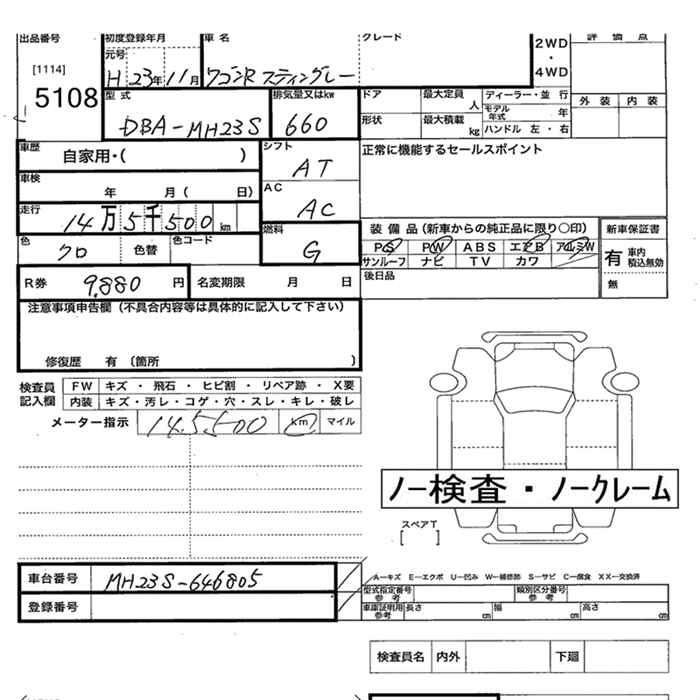 出品番号 初度登録年月 車名 グレード 2WD ・ 4WD 評価点
[1114] 元号
5108 H 23年11月 ワゴンR スティングレー
型式 排気量又はkw ドア 最大定員 人 ディーラー・並行 外装 内装
DBA-MH23S 660 形状 最大積載 kg モデル年式 年
ハンドル 左・右
車歴 自家用・( ) シフト AT 正常に機能するセールスポイント
車検 年 月( 日) AC AC
走行 14万5千500 km 燃料 G 装備品(新車からの純正品に限り○印) 新車保証書
色 クロ 色替 色コード PS PW ABS エアB アルミW 有 車内積込無効
サンルーフ ナビ TV カワ
R券 9,880円 名変期限 月 日 後日品 無
注意事項申告欄(不具合内容等は具体的に記入して下さい)
修復歴 有 〔箇所 〕
検査員記入欄 FW キズ・飛石・ヒビ割・リペア跡・X要
内装 キズ・汚レ・コゲ・穴・スレ・キレ・破レ
メーター指示 145,500 km マイル
ノー検査・ノークレーム
スペアT
[ ]
車台番号 MH23S-646805
登録番号
A-キズ E-エクボ U-凹み W-補修跡 S-サビ C-腐食 XX-交換済
型式指定番号 参考 類別区分番号 参考
車庫証明用 参考 長さ cm 幅 cm 高さ cm
検査員名 内外 下廻